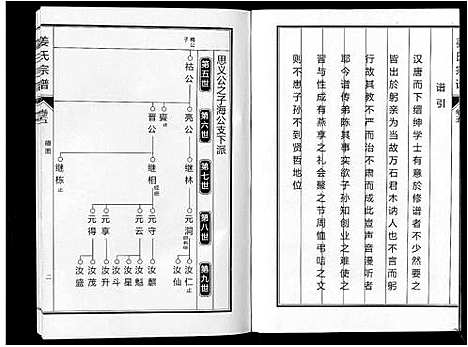 谱引
汉唐而下缙绅学士有意於修谱者不少然要之
皆出於躬亲为当故万石君木讷人也不言而躬
行故其教不严而治不肃而成此岂声音漫听者
耶今谱传弟陈其事实示欲子孙知创业之难使之
冒与性成有燕享之礼会聚之节周恤弔咭之文
则不患子孙不到贤哲地位
姜氏宗谱
卷五
礴图
二
思义公之子海公支下派
第五世
第六世
第七世
第八世
第九世
祜公
亮公
㐮止
晋公
继林
继相
继栋止
元洞
元守
元云
元享
元得
汝仁止
汝仙
汝麒
汝魁
汝星
汝斗
汝升
汝茂
汝盛